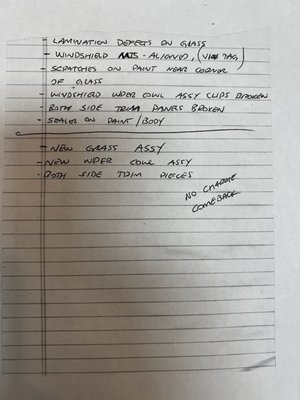 - LAMINATION DEFECTS ON GLASS
- WINDSHIELD MIS-ALIGNED, (VIN TAG)
- SCRATCHES ON PAINT NEAR CORNER
OF GLASS
- WINDSHIELD WIPER COWL ASSY CLIPS BROKEN
- BOTH SIDE TRIM PANELS BROKEN
- SEALER ON PAINT/BODY
- NEW GLASS ASSY
- NEW WIPER COWL ASSY
- BOTH SIDE TRIM PIECES
NO CHARGE
COMEBACK